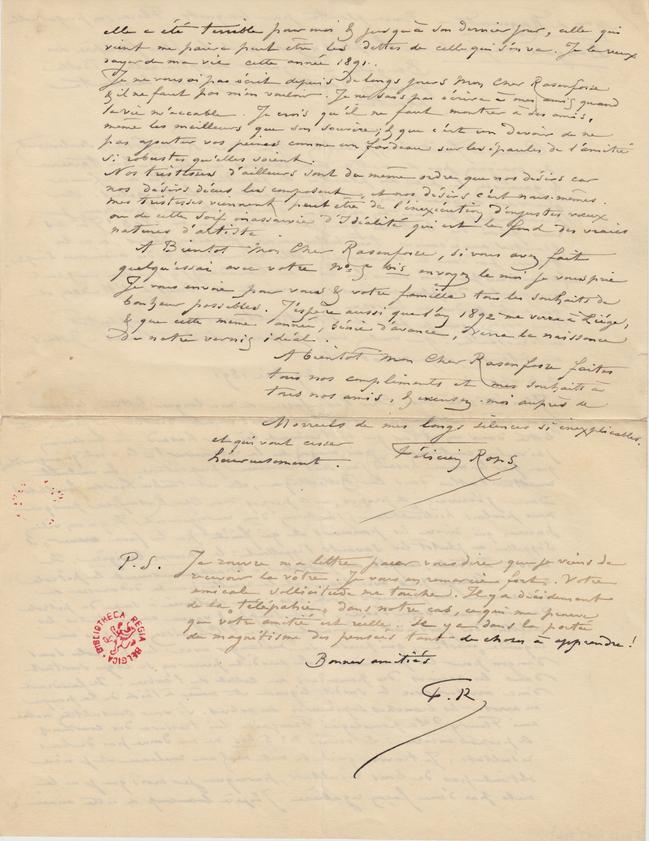 elle a été terrible pour moi & jusqu'à son dernier jour, celle qui
vient me paiera peut être les dettes de celle qui s'en va. Je la veux
rayer de ma vie cette année 1891..
Je ne vous ai pas écrit depuis de longs jours Mon Cher Rassenfosse
& il ne faut pas m'en vouloir. Je ne sais pas écrire à mes amis quand
la vie m'accable. Je crois qu'il ne faut montrer à ses amis,
même les meilleurs que son sourire, & que c'est un devoir de ne
pas ajouter vos peines comme un fardeau sur les épaules de l'amitié
si robustes qu'elles soient.
Nos tristesses d'ailleurs sont du même ordre que nos désirs car
nos désirs déçus les composent, & nos désirs c'est nous-mêmes.
Mes tristesses viennent peut être de l'inexécution d'injustes vœux
ou de cette soif inassouvie d'Idéalité qui est le fond des vraies
natures d'artiste.
A Bientot Mon Cher Rassenfosse, si vous avez fait
quelqu'essai avec votre No 5 bis envoyez le moi je vous prie
Je vous envoie pour vous & votre famille tous les souhaits de
bonheur possibles. J'espère aussi que l'an 1892 me verra à Liége,
& que cette même année, bénie d'avance, verra la naissance
De notre vernis idéal.
A bientot Mon Cher Rassenfosse faites
tous nos compliments et mes souhaits à
tous nos amis, & excusez-moi auprès de
de mes longs silences si inexplicables,
et qui vont cesser
heureusement. Félicien Rops
P.S. Je rouvre ma lettre pour vous dire que je viens de
recevoir la vôtre. Je vous en remercie fort. Votre
amicale sollicitude me touche. Il y a décidément
de la "télépathie" dans notre cas, ce qui me prouve
que votre amitié est réelle. Il y a dans la portée
du magnétisme des pensées tant de choses à apprendre!
Bonnes amitiés
F. R
BIBLIOTHECA REGIA BELGICA